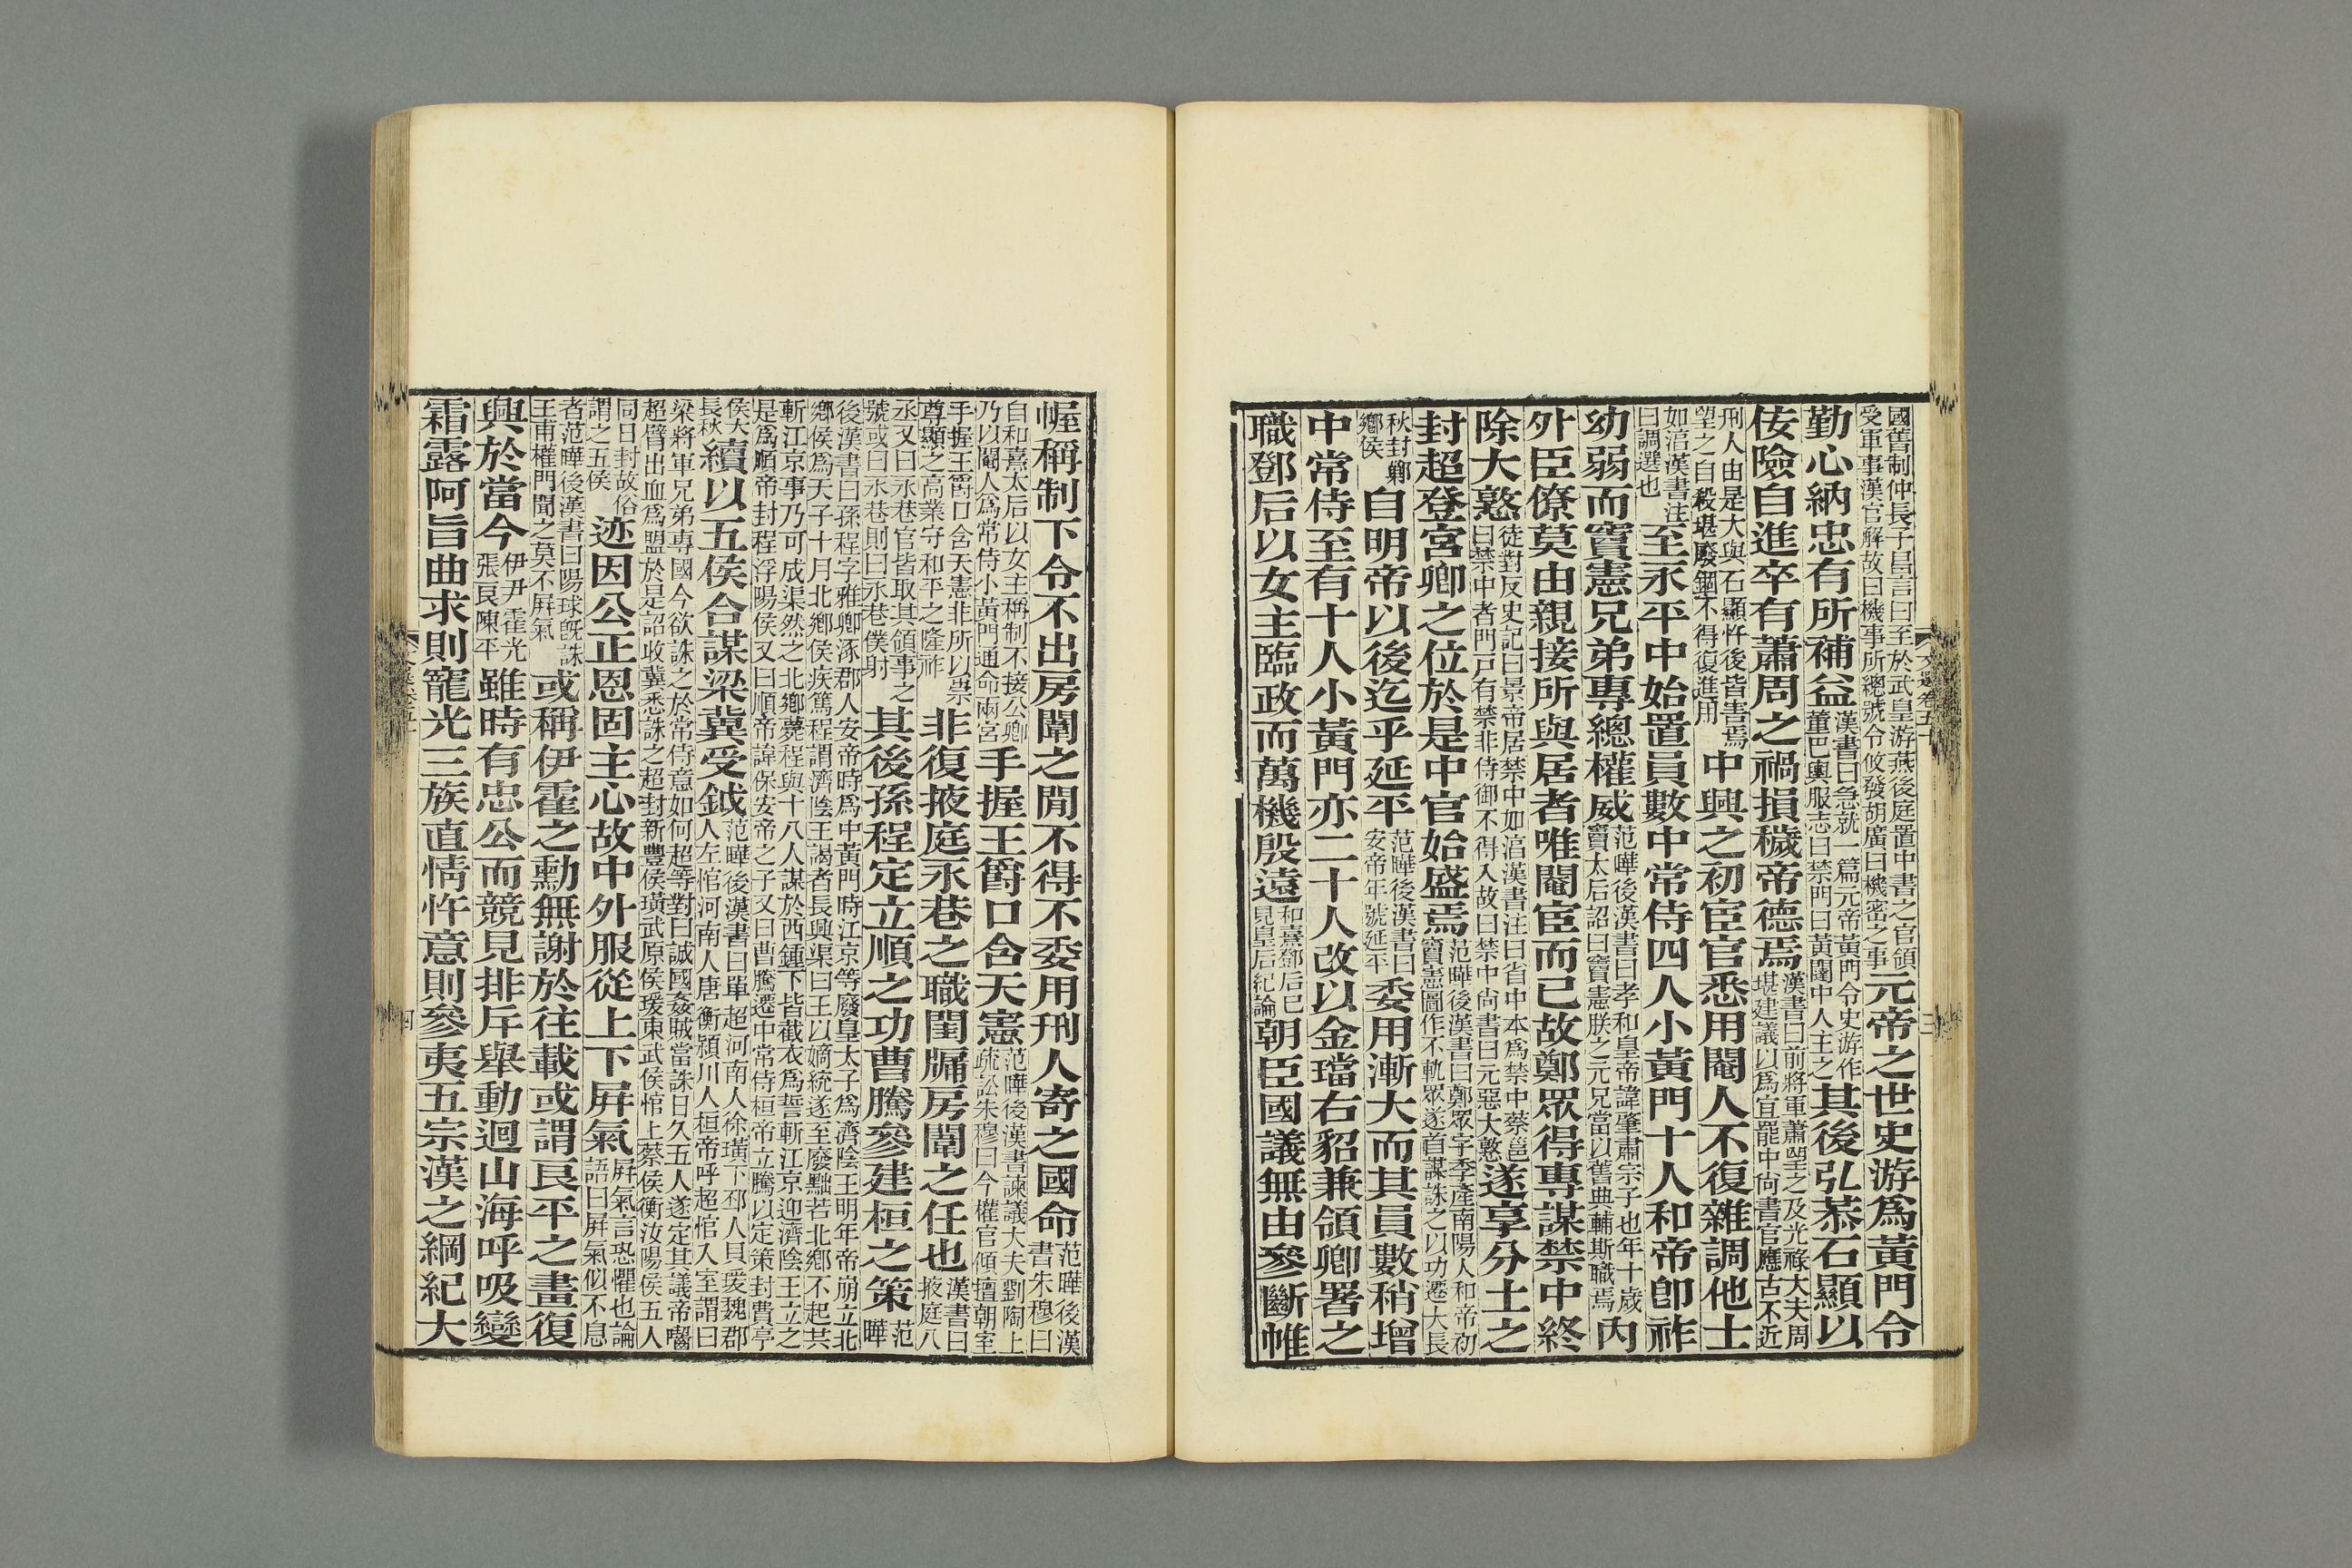 國舊制仲長子昌言曰至於武皇游燕後庭置中書之官領
受軍事漢官解故曰機事所總號令攸發胡廣曰機密之事
元帝之世史游爲黃門令
勤心納忠有所補益
漢書曰急就一篇元帝黃門令史游作
董巴輿服志曰禁門曰黃闥中人主之
其後弘恭石顯以
佞險自進卒有蕭周之禍損穢帝德焉
漢書曰前將軍蕭望之及光祿大夫周
堪建議以爲宜罷中尚書官應古不近
刑人由是大與石顯忤後皆害焉
望之自殺堪廢錮不得復進用
中興之初宦官悉用閹人不復雜調他士
如淳漢書注
曰調選也
至永平中始置員數中常侍四人小黃門十人和帝卽祚
幼弱而竇憲兄弟專總權威
范曄後漢書曰孝和皇帝諱肇肅宗子也年十歲
竇太后詔曰竇憲朕之元兄當以舊典輔斯職焉
內
外臣僚莫由親接所與居者唯閹宦而已故鄭眾得專謀禁中終
除大憝
徒對反史記曰景帝居禁中如淳漢書注曰省中本爲禁中蔡邕
曰禁中者門戸有禁非侍御不得入故曰禁中尚書曰元惡大憝
遂享分土之
封超登宮卿之位於是中官始盛焉
范曄後漢書曰鄭眾字季產南陽人和帝初
竇憲圖作不軌眾遂首謀誅之以功遷大長
秋封鄛
鄉侯
自明帝以後迄乎延平
范曄後漢書曰
安帝年號延平
委用漸大而其員數稍增
中常侍至有十人小黃門亦二十人改以金璫右貂兼領卿署之
職鄧后以女主臨政而萬機殷遠
和熹鄧后已
見皇后紀論
朝臣國議無由參斷帷
文選卷五十
三
幄稱制下令不出房闈之閒不得不委用刑人寄之國命
范曄後漢
書朱穆曰
自和熹太后以女主稱制不接公卿
乃以閹人爲常侍小黃門通命兩宮
手握王爵口含天憲
范曄後漢書諫議大夫劉陶上
疏訟朱穆曰今權官傾擅朝室
手握王爵口含天憲非所以崇
尊顯之高業守和平之隆祚
非復掖庭永巷之職閨牖房闥之任也
漢書曰
掖庭八
丞又曰永巷官皆取其領事之
號或曰永巷則曰永巷僕射
其後孫程定立順之功曹騰參建桓之策
范
曄
後漢書曰孫程字雅卿涿郡人安帝時爲中黃門時江京等廢皇太子爲濟陰王明年帝崩立北
鄉侯爲天子十月北鄉侯疾篤程謂濟陰王謁者長興渠曰王以嫡統遂至廢黜若北鄉不起共
斬江京事乃可成渠然之北鄉薨程與十八人謀於西鍾下皆截衣爲誓斬江京迎濟陰王立之
是爲順帝封程浮陽侯又曰順帝諱保安帝之子又曰曹騰遷中常侍桓帝立騰以定策封費亭
侯大
長秋
續以五侯合謀梁冀受鉞
范曄後漢書曰單超河南人徐璜下邳人具瑗魏郡
人左悺河南人唐衡潁川人桓帝呼超悺入室謂曰
梁將軍兄弟專國今欲誅之於常侍意如何超等對曰誠國姦賊當誅日久五人遂定其議帝齧
超臂出血爲盟於是詔收冀悉誅之超封新豐侯璜武原侯瑗東武侯悺上蔡侯衡汝陽侯五人
同日封故俗
謂之五侯
迹因公正恩固主心故中外服從上下屏氣
屏氣言恐懼也論
語曰屏氣似不息
者范曄後漢書曰陽球旣誅
王甫權門聞之莫不屏氣
或稱伊霍之勳無謝於往載或謂良平之畫復
興於當今
伊尹霍光
張良陳平
雖時有忠公而競見排斥舉動迴山海呼吸變
霜露阿旨曲求則寵光三族直情忤意則參夷五宗漢之綱紀大
文選卷五十
四